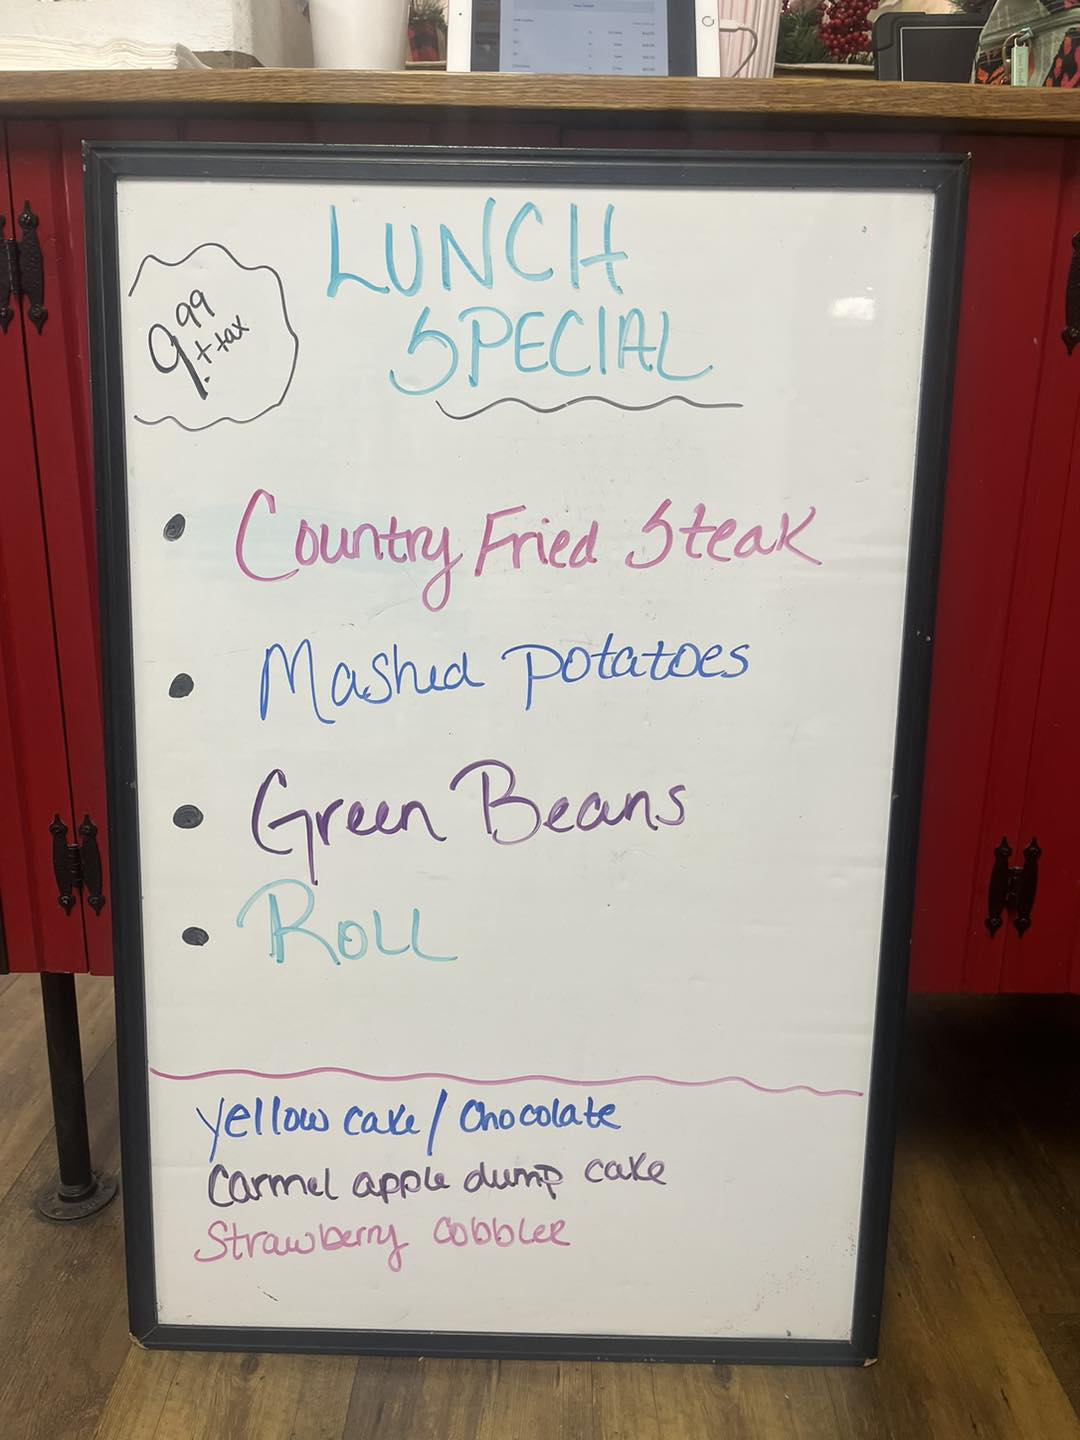 LUNCH
SPECIAL
9.99
+ tax
• Country Fried Steak
• Mashed Potatoes
• Green Beans
• ROLL
yellow cake / Chocolate
Carmel apple dump cake
Strawberry Cobbler